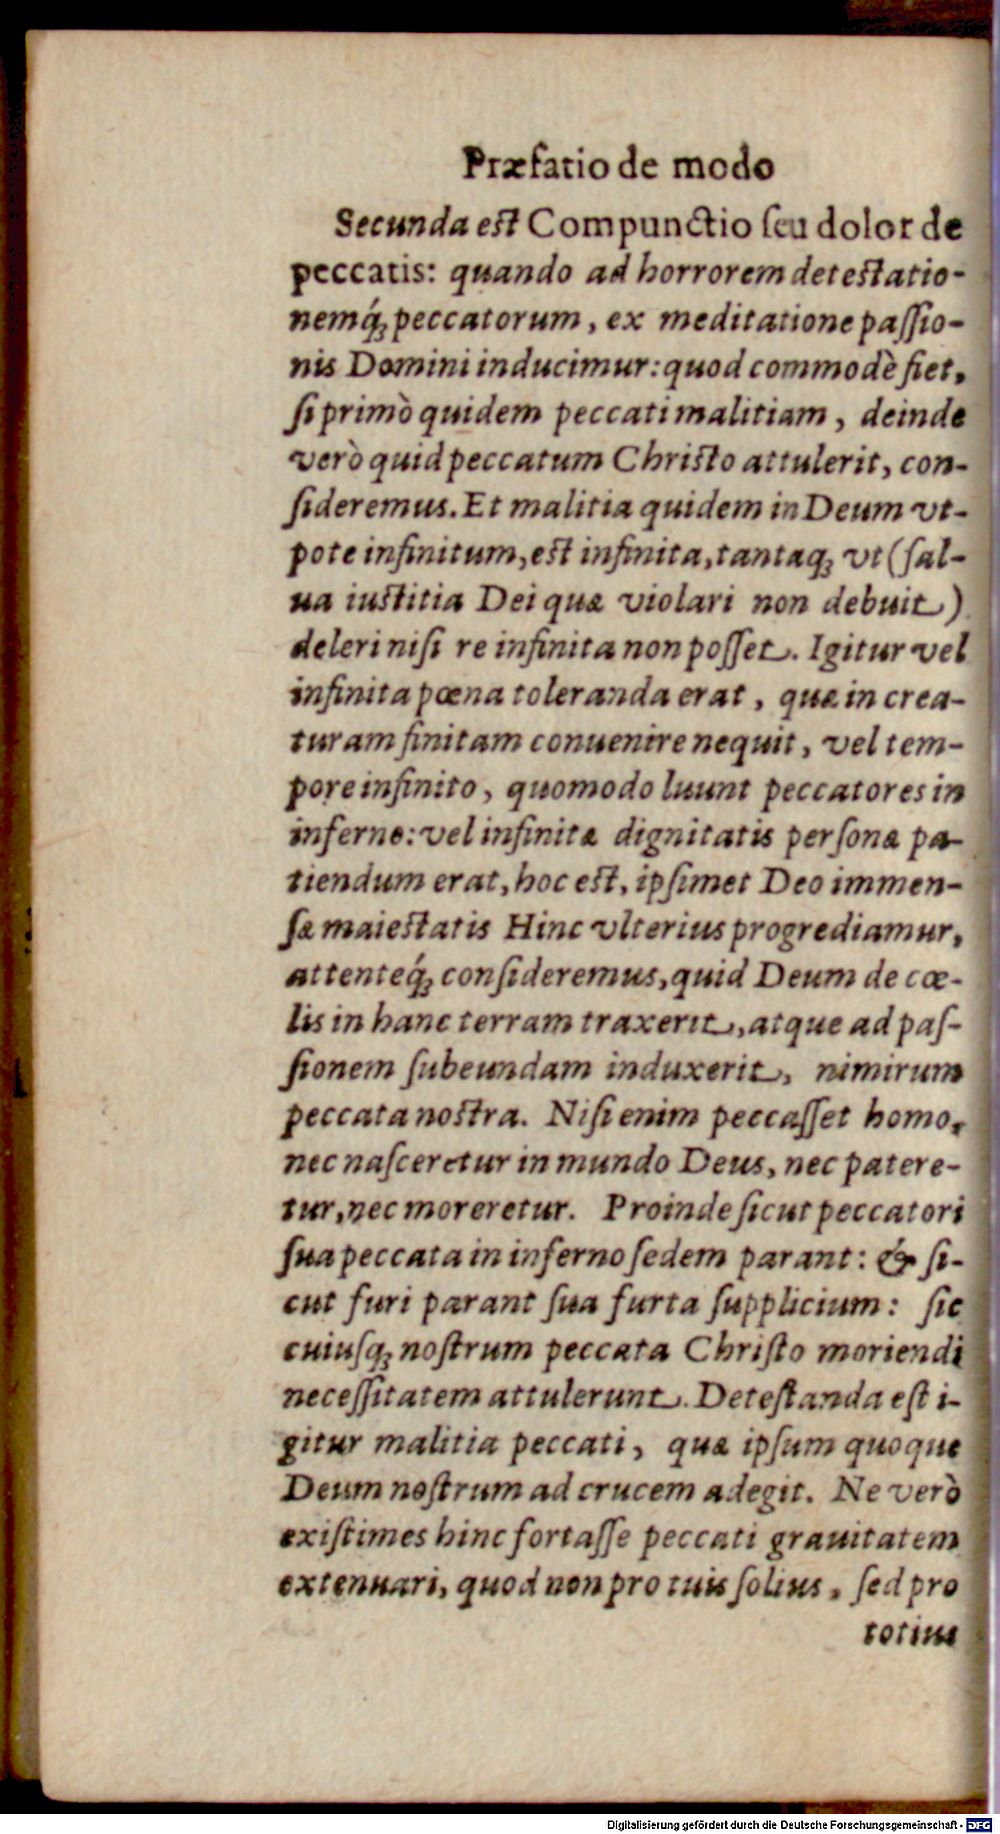 Præfatio de modo
Secunda est Compunctio ſeu dolor de
peccatis: quando ad horrorem detestatio-
nemq́ꝫ peccatorum, ex meditatione paſſio-
nis Domini inducimur: quod commodè fiet,
ſi primò quidem peccati malitiam, deinde
verò quid peccatum Christo attulerit, con-
ſideremus. Et malitia quidem in Deum vt-
pote infinitum, est infinita, tantaqꝫ vt (ſal-
ua iustitia Dei quæ violari non debuit)
deleri niſi re infinita non poſſet. Igitur vel
infinita pœna toleranda erat, quæ in crea-
turam finitam conuenire nequit, vel tem-
pore infinito, quomodo luunt peccatores in
inferno: vel infinitæ dignitatis perſonæ pa-
tiendum erat, hoc est, ipſimet Deo immen-
ſæ maiestatis Hinc vlterius progrediamur,
attenteq́ꝫ conſideremus, quid Deum de cœ-
lis in hanc terram traxerit, atque ad paſ-
ſionem ſubeundam induxerit, nimirum
peccata nostra. Niſi enim peccaſſet homo,
nec naſceretur in mundo Deus, nec patere-
tur, nec moreretur. Proinde ſicut peccatori
ſua peccata in inferno ſedem parant: & ſi-
cut furi parant ſua furta ſupplicium: ſic
cuiuſqꝫ noſtrum peccata Chriſto moriendi
neceſſitatem attulerunt. Deteſtanda eſt i-
gitur malitia peccati, quæ ipſum quoque
Deum noſtrum ad crucem adegit. Ne verò
exiſtimes hinc fortaſſe peccati grauitatem
extenuari, quod non pro tuis ſolius, ſed pro
totius
Digitalisierung gefördert durch die Deutsche Forschungsgemeinschaft - DFG